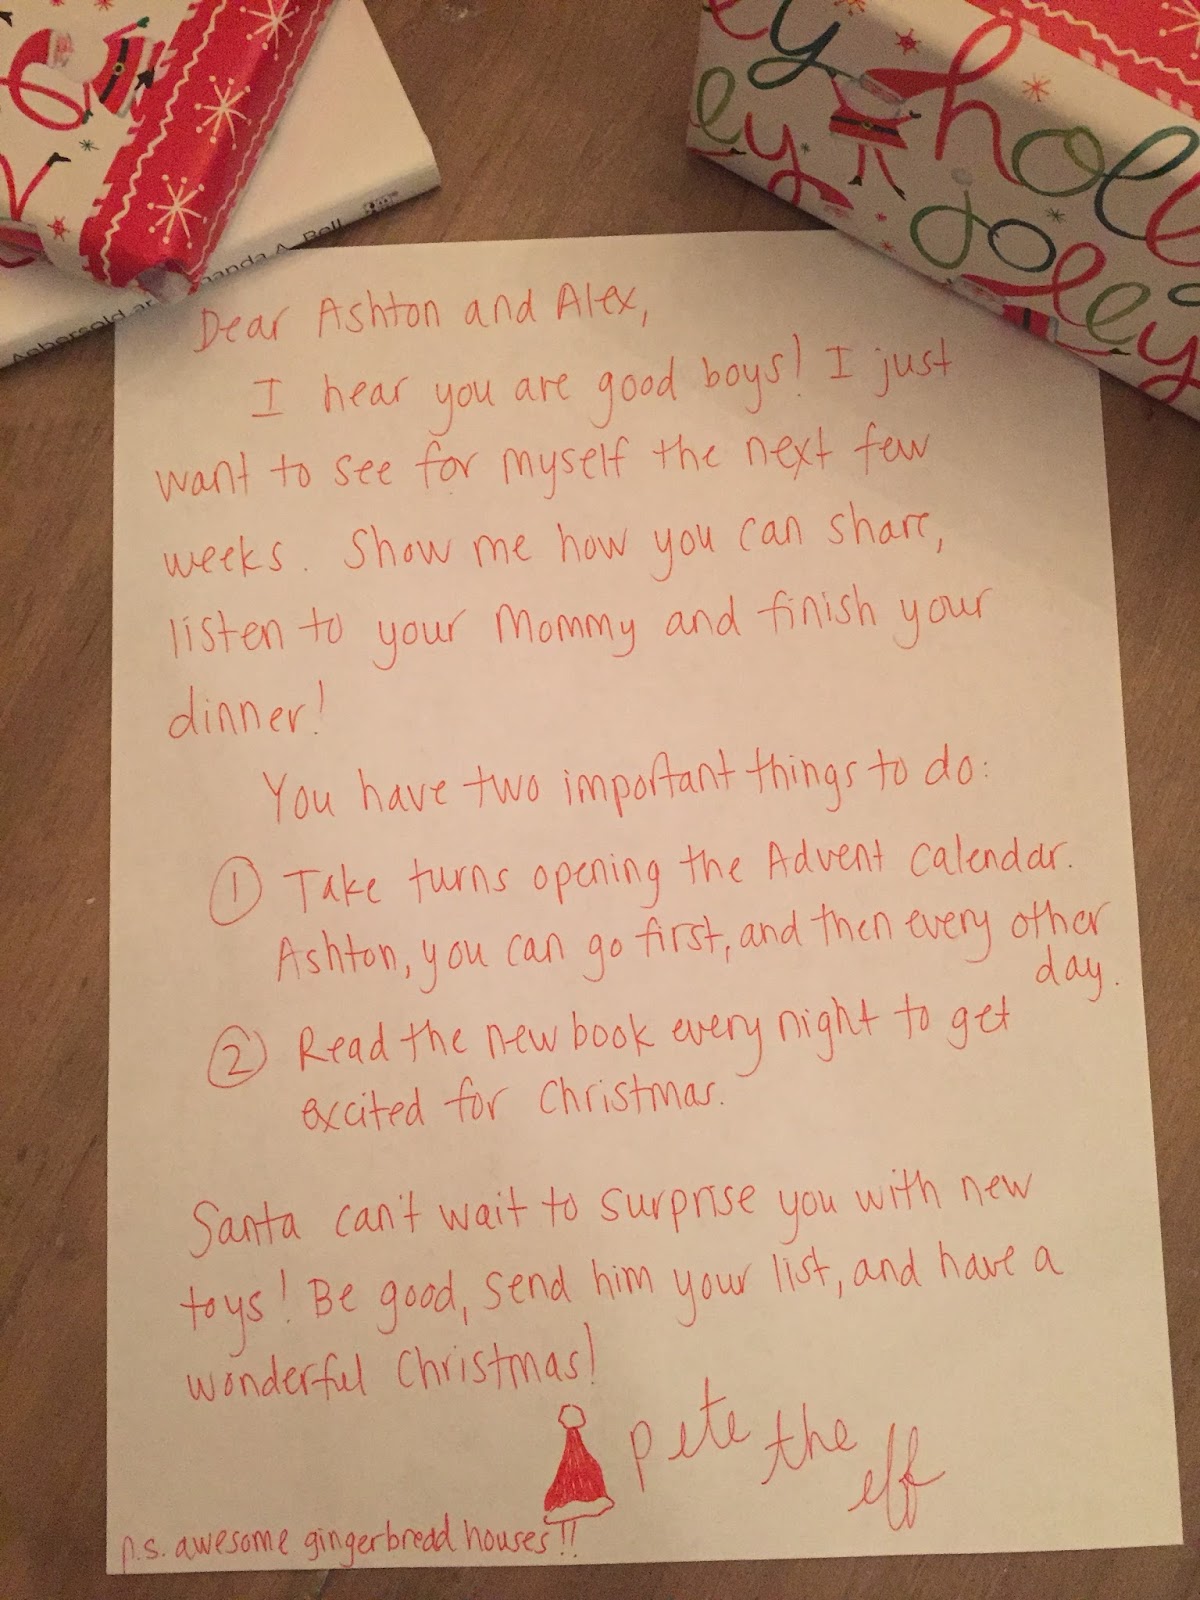 holl
joley
Aebersold an
anda A. Bell
Dear Ashton and Alex,
I hear you are good boys! I just
want to see for myself the next few
weeks. Show me how you can share,
listen to your Mommy and finish your
dinner!
You have two important things to do:
① Take turns opening the Advent Calendar.
Ashton, you can go first, and then every other
day.
② Read the new book every night to get
excited for Christmas.
Santa can't wait to surprise you with new
toys! Be good, send him your list, and have a
wonderful Christmas!
pete the
elf
p.s. awesome gingerbread houses!!